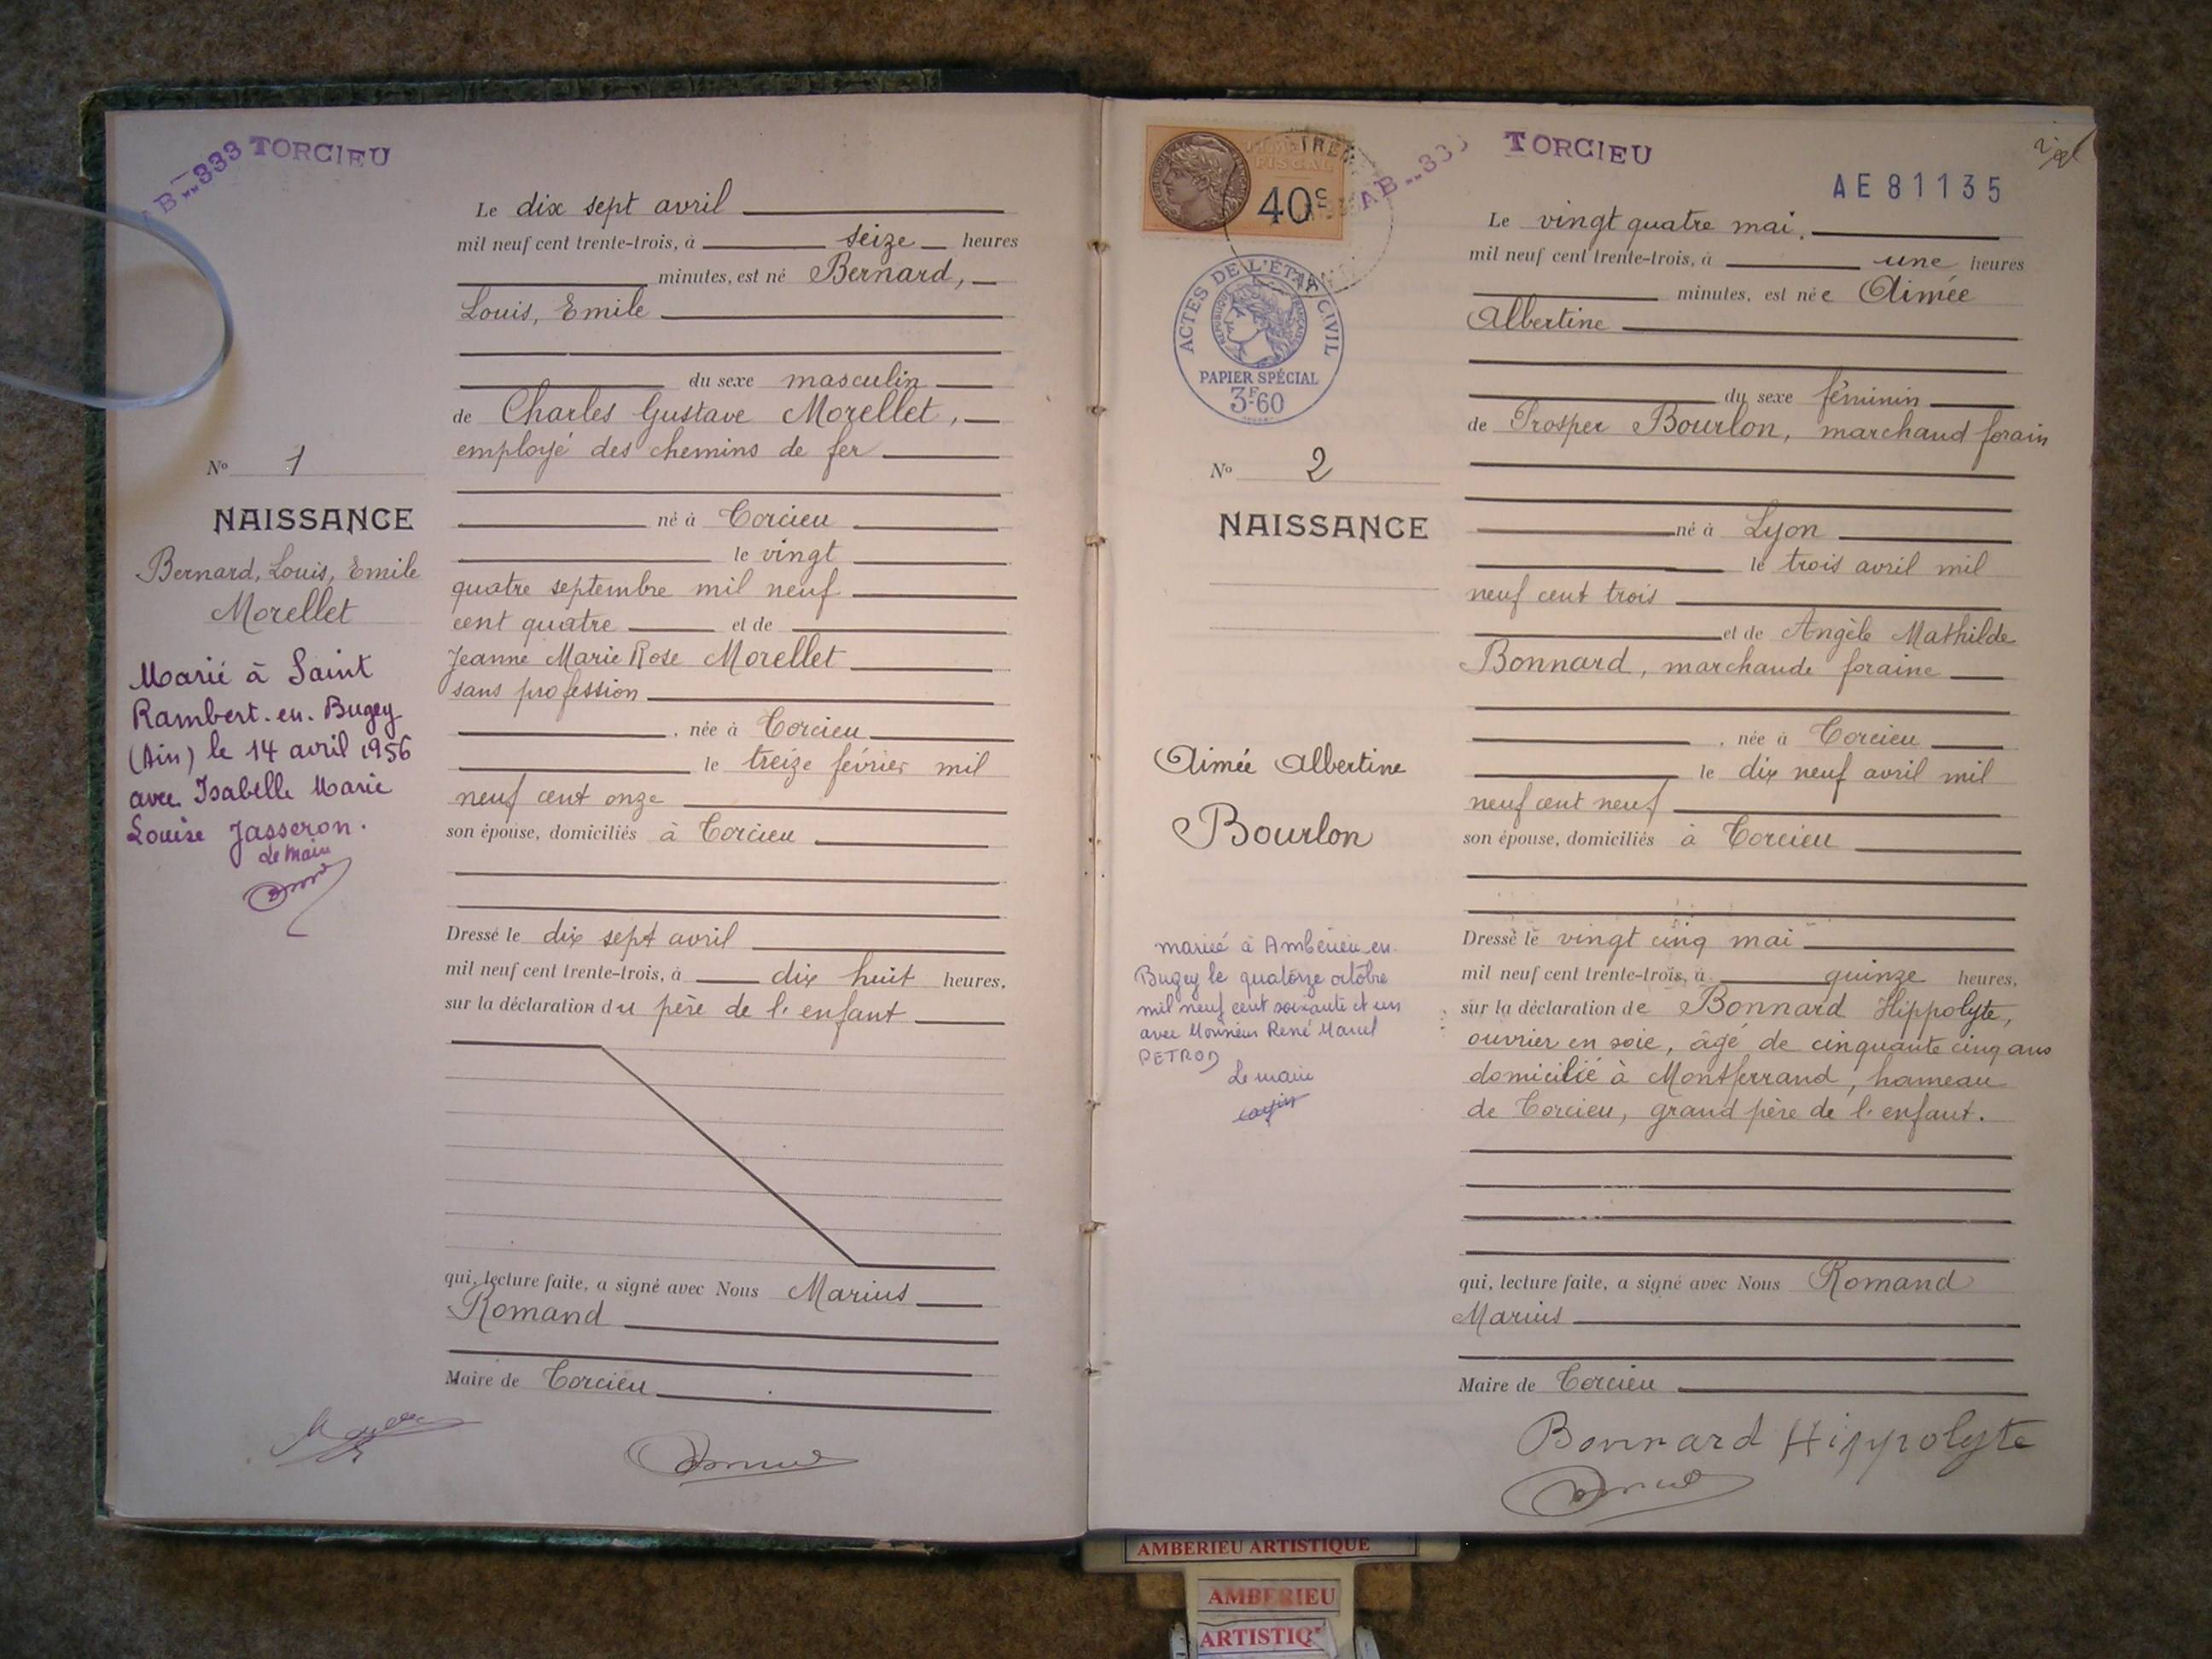 AB...333 TORCIEU
Le dix sept avril
mil neuf cent trente-trois, à seize heures
minutes, est né Bernard,
Louis, Emile
du sexe masculin
de Charles Gustave Morellet,
employé des chemins de fer
né à Torcieu
le vingt
quatre septembre mil neuf
cent quatre et de
Jeanne Marie Rose Morellet
sans profession
, née à Torcieu
le treize février mil
neuf cent onze
son épouse, domiciliés à Torcieu
Dressé le dix sept avril
mil neuf cent trente-trois, à dix huit heures,
sur la déclaration du père de l'enfant
qui, lecture faite, a signé avec Nous Marius
Romand
Maire de Torcieu
No 1
NAISSANCE
Bernard, Louis, Emile
Morellet
Marié à Saint
Rambert-en-Bugey
(Ain) le 14 avril 1956
avec Isabelle Marie
Louise Jasseron.
Le Maire
FISCAL
40c
AB...333 TORCIEU
AE 81135
ACTES DE L'ÉTAT CIVIL
RÉPUBLIQUE FRANÇAISE
PAPIER SPÉCIAL
3F60
No 2
NAISSANCE
Aimée Albertine
Bourlon
mariée à Ambérieu-en-
Bugey le quatorze octobre
mil neuf cent soixante et un
avec Monsieur René Marcel
PETROD
Le maire
Le vingt quatre mai.
mil neuf cent trente-trois, à une heures
minutes, est née Aimée
Albertine
du sexe féminin
de Prosper Bourlon, marchand forain
né à Lyon
le trois avril mil
neuf cent trois
et de Angèle Mathilde
Bonnard, marchande foraine
, née à Torcieu
le dix neuf avril mil
neuf cent neuf
son épouse, domiciliés à Torcieu
Dressé le vingt cinq mai
mil neuf cent trente-trois, à quinze heures,
sur la déclaration de Bonnard Hippolyte,
ouvrier en soie, âgé de cinquante cinq ans
domicilié à Montferrand, hameau
de Torcieu, grand père de l'enfant.
qui, lecture faite, a signé avec Nous Romand
Marius
Maire de Torcieu
Bonnard Hippolyte
AMBERIEU ARTISTIQUE
AMBERIEU
ARTISTIQ